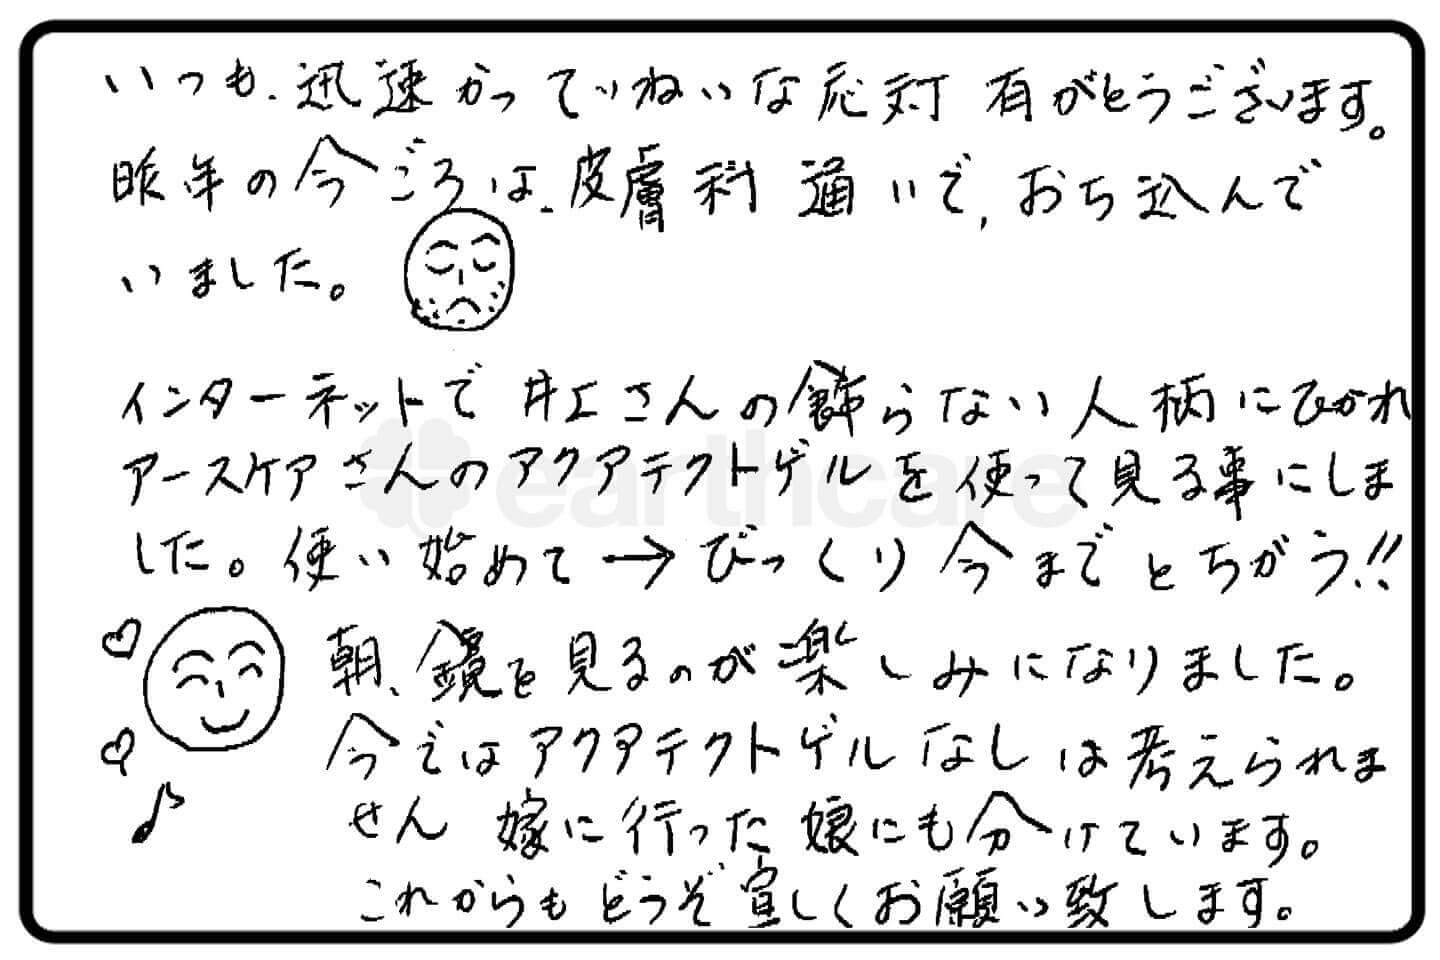 いつも、迅速かつていねいな応対 有がとうございます。
昨年の今ごろは、皮膚科 通いで、おち込んで
いました。
インターネットで 井上さんの飾らない人柄にひかれ
アースケアさんのアクアテクトゲルを使って見る事にしま
した。使い始めて→びっくり 今までとちがう!!
朝、鏡を見るのが楽しみになりました。
今ではアクアテクトゲルなしは考えられま
せん 嫁に行った娘にも分けています。
これからもどうぞ宜しくお願い致します。
earthcare